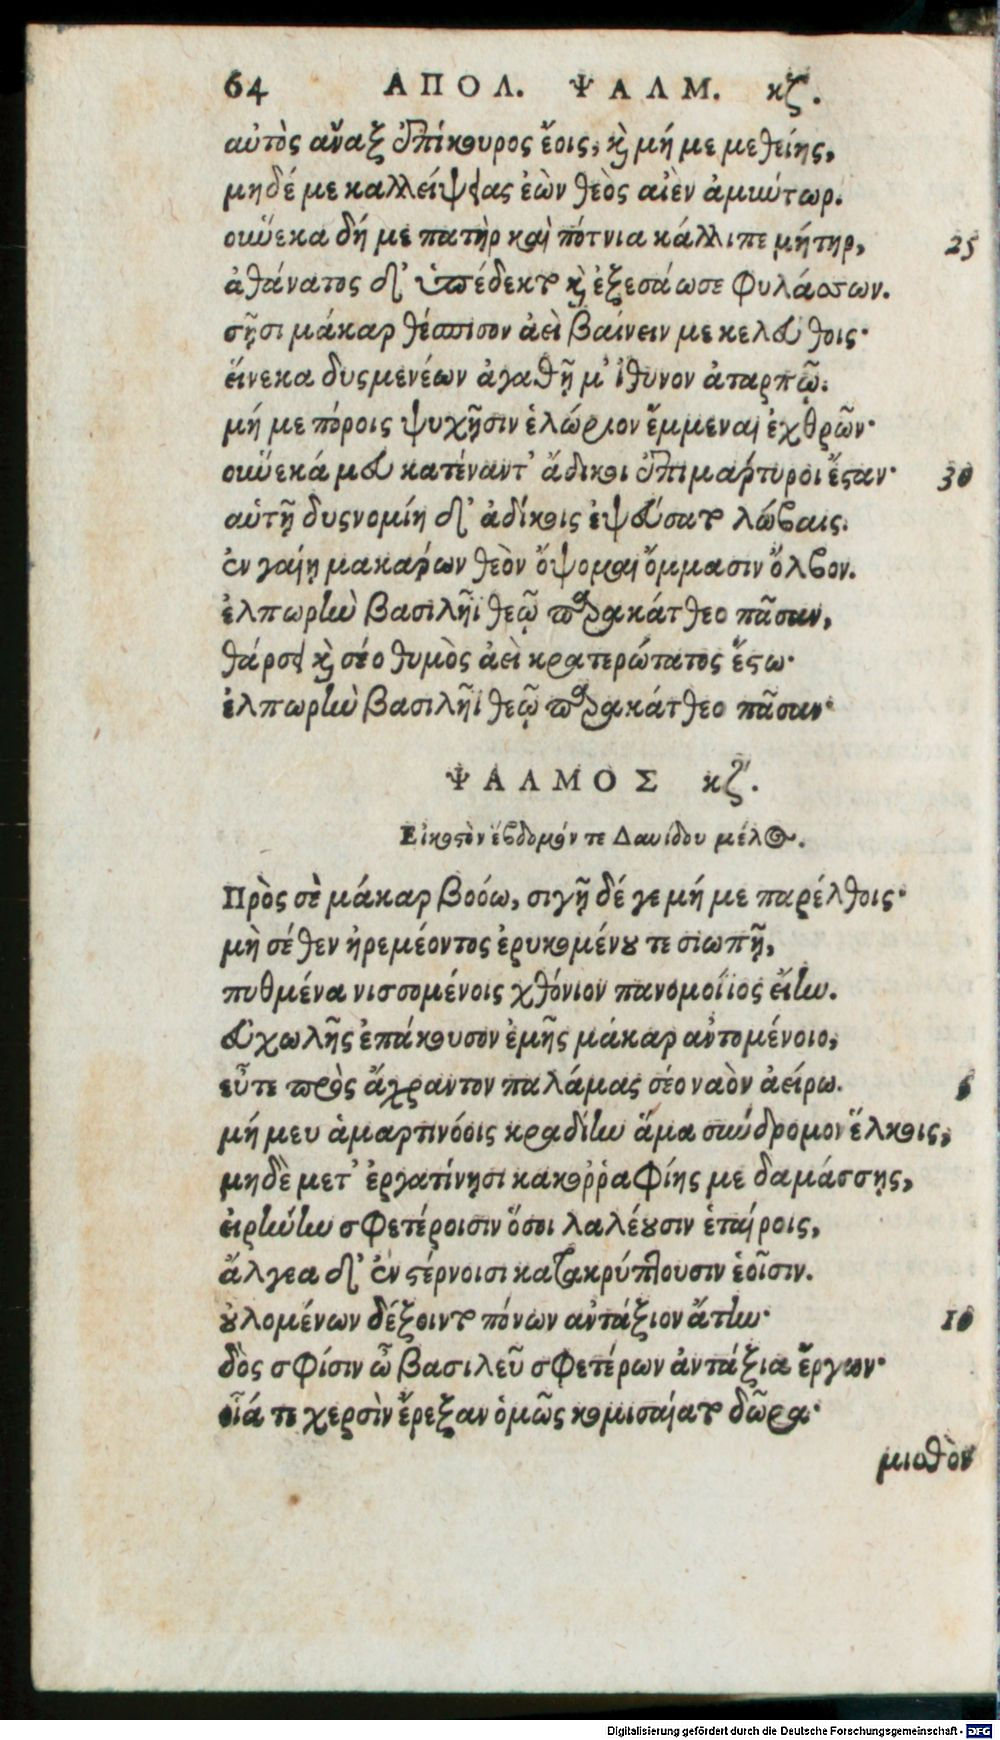 64 ΑΠΟΛ. ΨΑΛΜ. κζ.
αὐτὸς ἄναξ ἐπίκουρος ἔοις, καὶ μή με μεθείης,
μηδέ με καλλείψῃας ἐὼν θεὸς αἰὲν ἀμύντωρ.
οὕνεκα δή με πατὴρ καὶ πότνια κάλλιπε μήτηρ, 25
ἀθάνατος δ' ὑπέδεκτο καὶ ἐξεσάωσε φυλάσσων.
σῇσι μάκαρ θέσπισον ἀεὶ βαίνειν με κελεύθοις·
εἵνεκα δυσμενέων ἀγαθῇ μ' ἴθυνον ἀταρπῷ.
μή με πόροις ψυχῇσιν ἑλώριον ἔμμεναι ἐχθρῶν·
οὕνεκά μευ κατέναντ' ἄδικοι ἐπιμάρτυροι ἔσταν· 30
αὑτῇ δυσνομίη δ' ἀδίκοις ἐψεύσατο λώβαις.
ἐν γαίῃ μακάρων θεὸν ὄψομαι ὄμμασιν ὄλβον.
ἐλπωρὴν βασιλῆϊ θεῷ παρακάτθεο πᾶσαν,
θάρσει καὶ σέο θυμὸς ἀεὶ κρατερώτατος ἔστω·
ἐλπωρὴν βασιλῆϊ θεῷ παρακάτθεο πᾶσαν·
ΨΑΛΜΟΣ κζ'.
Εἰκοστὸν ἕβδομόν τε Δαυίδου μέλος.
Πρὸς σὲ μάκαρ βοόω, σιγῇ δέ γε μή με παρέλθοις·
μὴ σέθεν ἠρεμέοντος ἐρυκομένου τε σιωπῇ,
πυθμένα νισσομένοις χθόνιον πανομοίϊος εἴην.
εὐχωλῆς ἐπάκουσον ἐμῆς μάκαρ ἀντομένοιο,
εὖτε πρὸς ἄχραντον παλάμας σέο ναὸν ἀείρω. 5
μή μευ ἁμαρτινόοις κραδίην ἅμα σύνδρομον ἕλκοις,
μηδὲ μετ' ἐργατίνῃσι κακοῤῥαφίης με δαμάσσῃς,
εἰρήνην σφετέροισιν ὅσοι λαλέουσιν ἑταίροις,
ἄλγεα δ' ἐν στέρνοισι κατακρύπτουσιν ἑοῖσιν.
οὐλομένων δέξοιντο πόνων ἀντάξιον ἄτην· 10
δὸς σφίσιν ὦ βασιλεῦ σφετέρων ἀντάξια ἔργων·
οἷά τε χερσὶν ἔρεξαν ὁμῶς κομισαίατο δῶρα·
μισθὸν
Digitalisierung gefördert durch die Deutsche Forschungsgemeinschaft - DFG